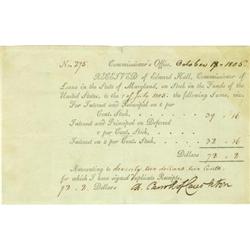 No. 795 Commissioner's Office, October 19. 1805
RECEIVED of Edward Hall, Commissioner of
Loans in the State of Maryland, on Stock in the Funds of the
United States, to the 1 of July 1805. the following Sums, viz.
For Interest and Principal on 6 per
Cent. Stock, 39 . 16
Interest and Principal on Deferred
6 per Cent. Stock,
Interest on 3 per Cent. Stock, 32 . 16
Dollars 72 . 2
Amounting to seventy two dollars two Cents.
for which I have signed Duplicate Receipts.
72. 2 Dollars Ch. Carroll of Carrollton